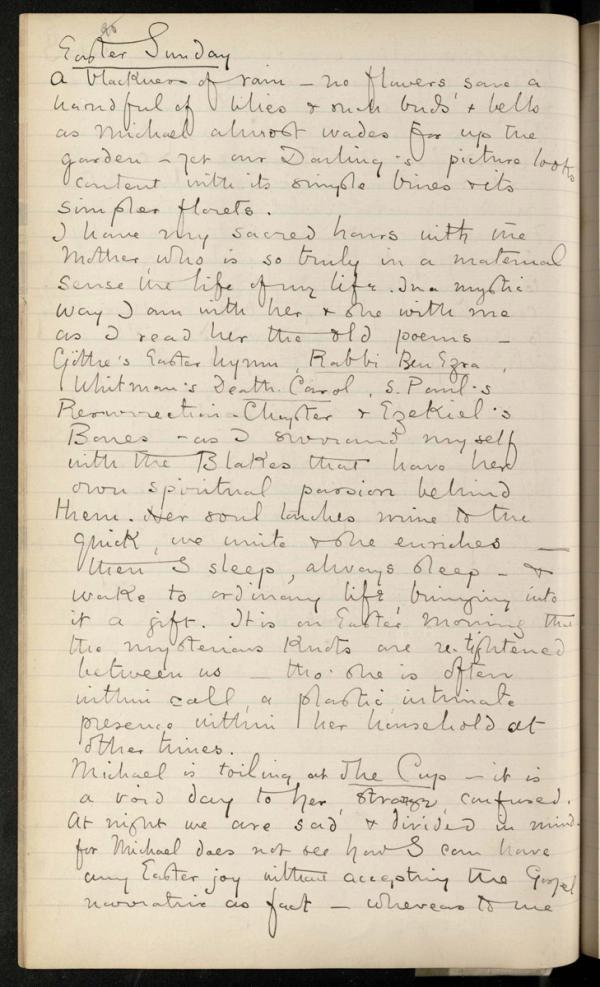 Easter Sunday
A blackness of rain – no flowers save a
handful of lilies & such buds & bells
as Michael almost wades for up the
garden – yet our Darling's picture looks
content with its simple bines & its
simpler florets.
I have my sacred hours with the
Mother who is so truly in a maternal
sense the life of my life. In a mystic
way I am with her & she with me
as I read her the old poems –
Göthe's Easter hymn, Rabbi Ben Ezra,
Whitman's Death-Carol, S. Paul's
Resurrection-Chapter & Ezekiel's
Bones – as I surround myself
with the Blakes that have her
own spiritual passion behind
them. Her soul touches mine to the
quick, we unite & she enriches —
then I sleep, always sleep – &
wake to ordinary life, bringing into
it a gift. It is on Easter Morning that
the mysterious knots are re-tightened
between us – tho' she is often
within call, a plastic, intimate
presence within her household at
other times.
Michael is toiling at The Cup – it is
a void day to her, strange, confused.
At night we are sad & divided in mind –
for Michael does not see how I can have
any Easter joy without accepting the Gospel
narrative as fact – whereas to me